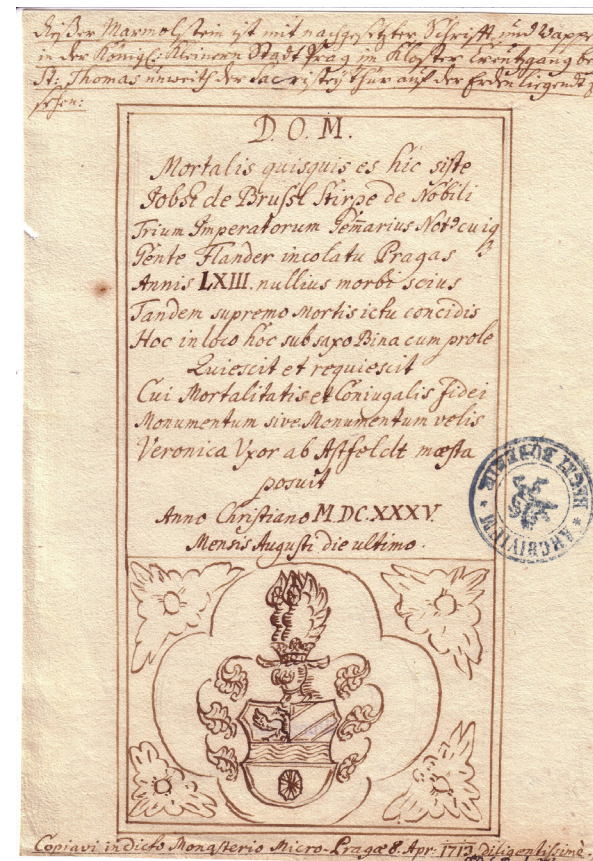 Dießer Marmolstein ist mit nachgesetzter Schrifft und Wappe
in der Königl: Kleinern Stadt Prag im Kloster Creutzgang be
St: Thomas unweith der Sacristey thür auf der Erden liegendt z
sehen:
D. O. M.
Mortalis quisquis es hic siste
Jobst de Brussl Stirpe de Nobili
Trium Imperatorum Gem̄arius
Gente Flander incolatu Pragas
Annis LXIII. nullius morbi scius
Tandem supremo Mortis ictu concidis
Hoc in loco hoc sub saxo Bina cum prole
Quiescit et requiescit
Cui Mortalitatis et Coniugalis fidei
Monumentum sive Monumentum velis
Veronica Vxor ab Astfeldt mæsta
posuit
Anno Christiano M.DC.XXXV.
Mensis Augusti die ultimo.
ARCHIVUM
REGNI BOHEMIÆ
Copiavi in dicto Monasterio Micro-Pragæ 8. Apr: 1713 Diligentissimè